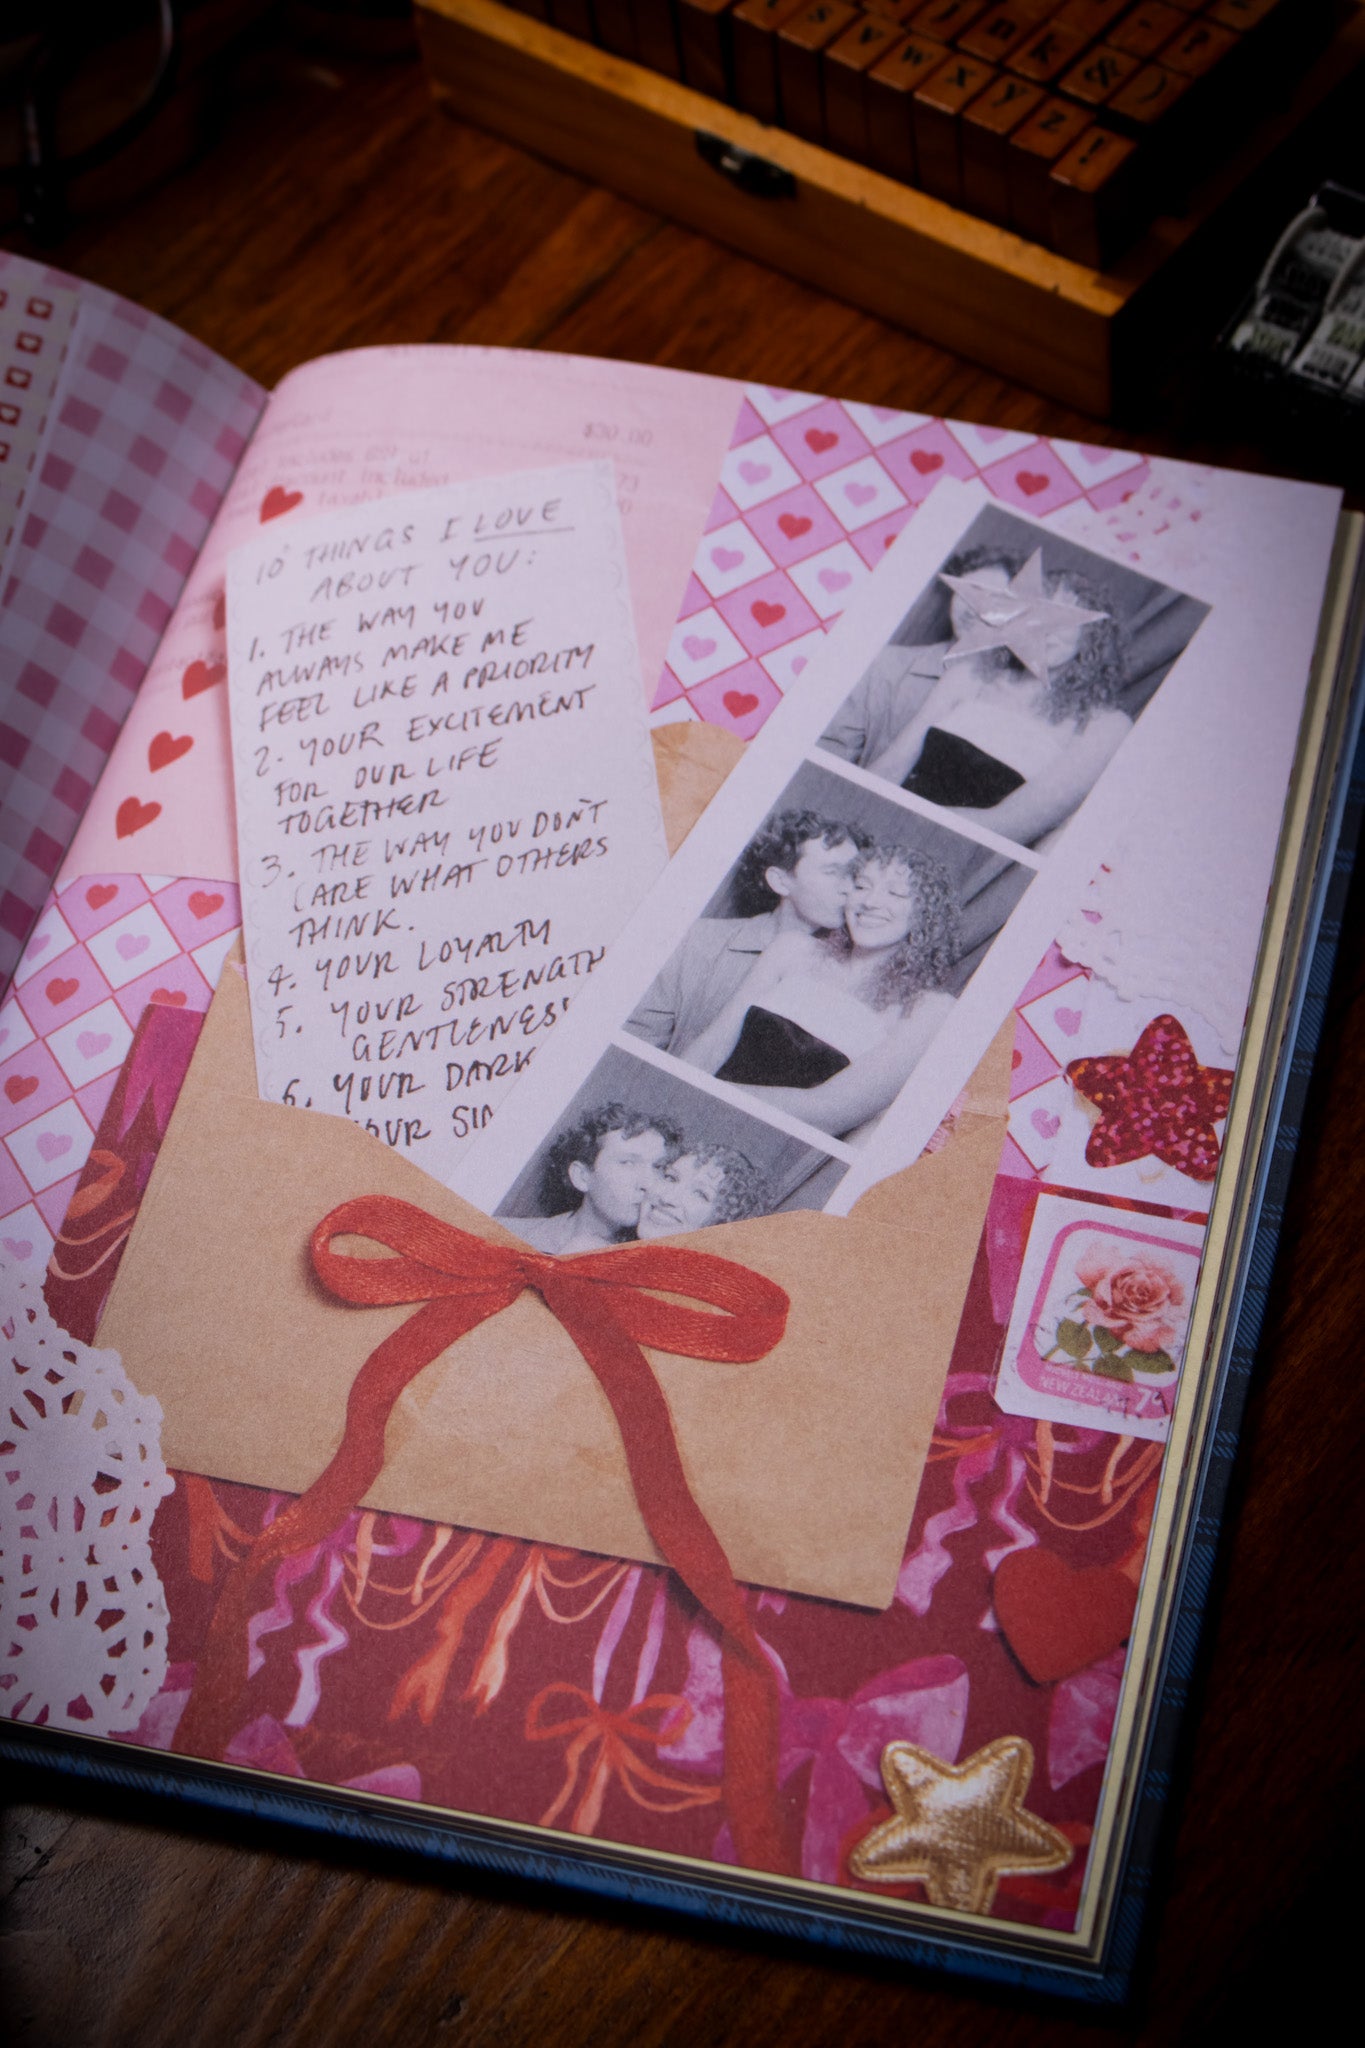 s v w x y z !
j n k & )
- ?
$30.00
includes GST of
discount included
73
10 THINGS I LOVE
ABOUT YOU:
1. THE WAY YOU
ALWAYS MAKE ME
FEEL LIKE A PRIORITY
2. YOUR EXCITEMENT
FOR OUR LIFE
TOGETHER
3. THE WAY YOU DON'T
CARE WHAT OTHERS
THINK.
4. YOUR LOYALTY
5. YOUR STRENGTH
GENTLENESS
6. YOUR DARK
YOUR SIN
NEW ZEALAND 7c